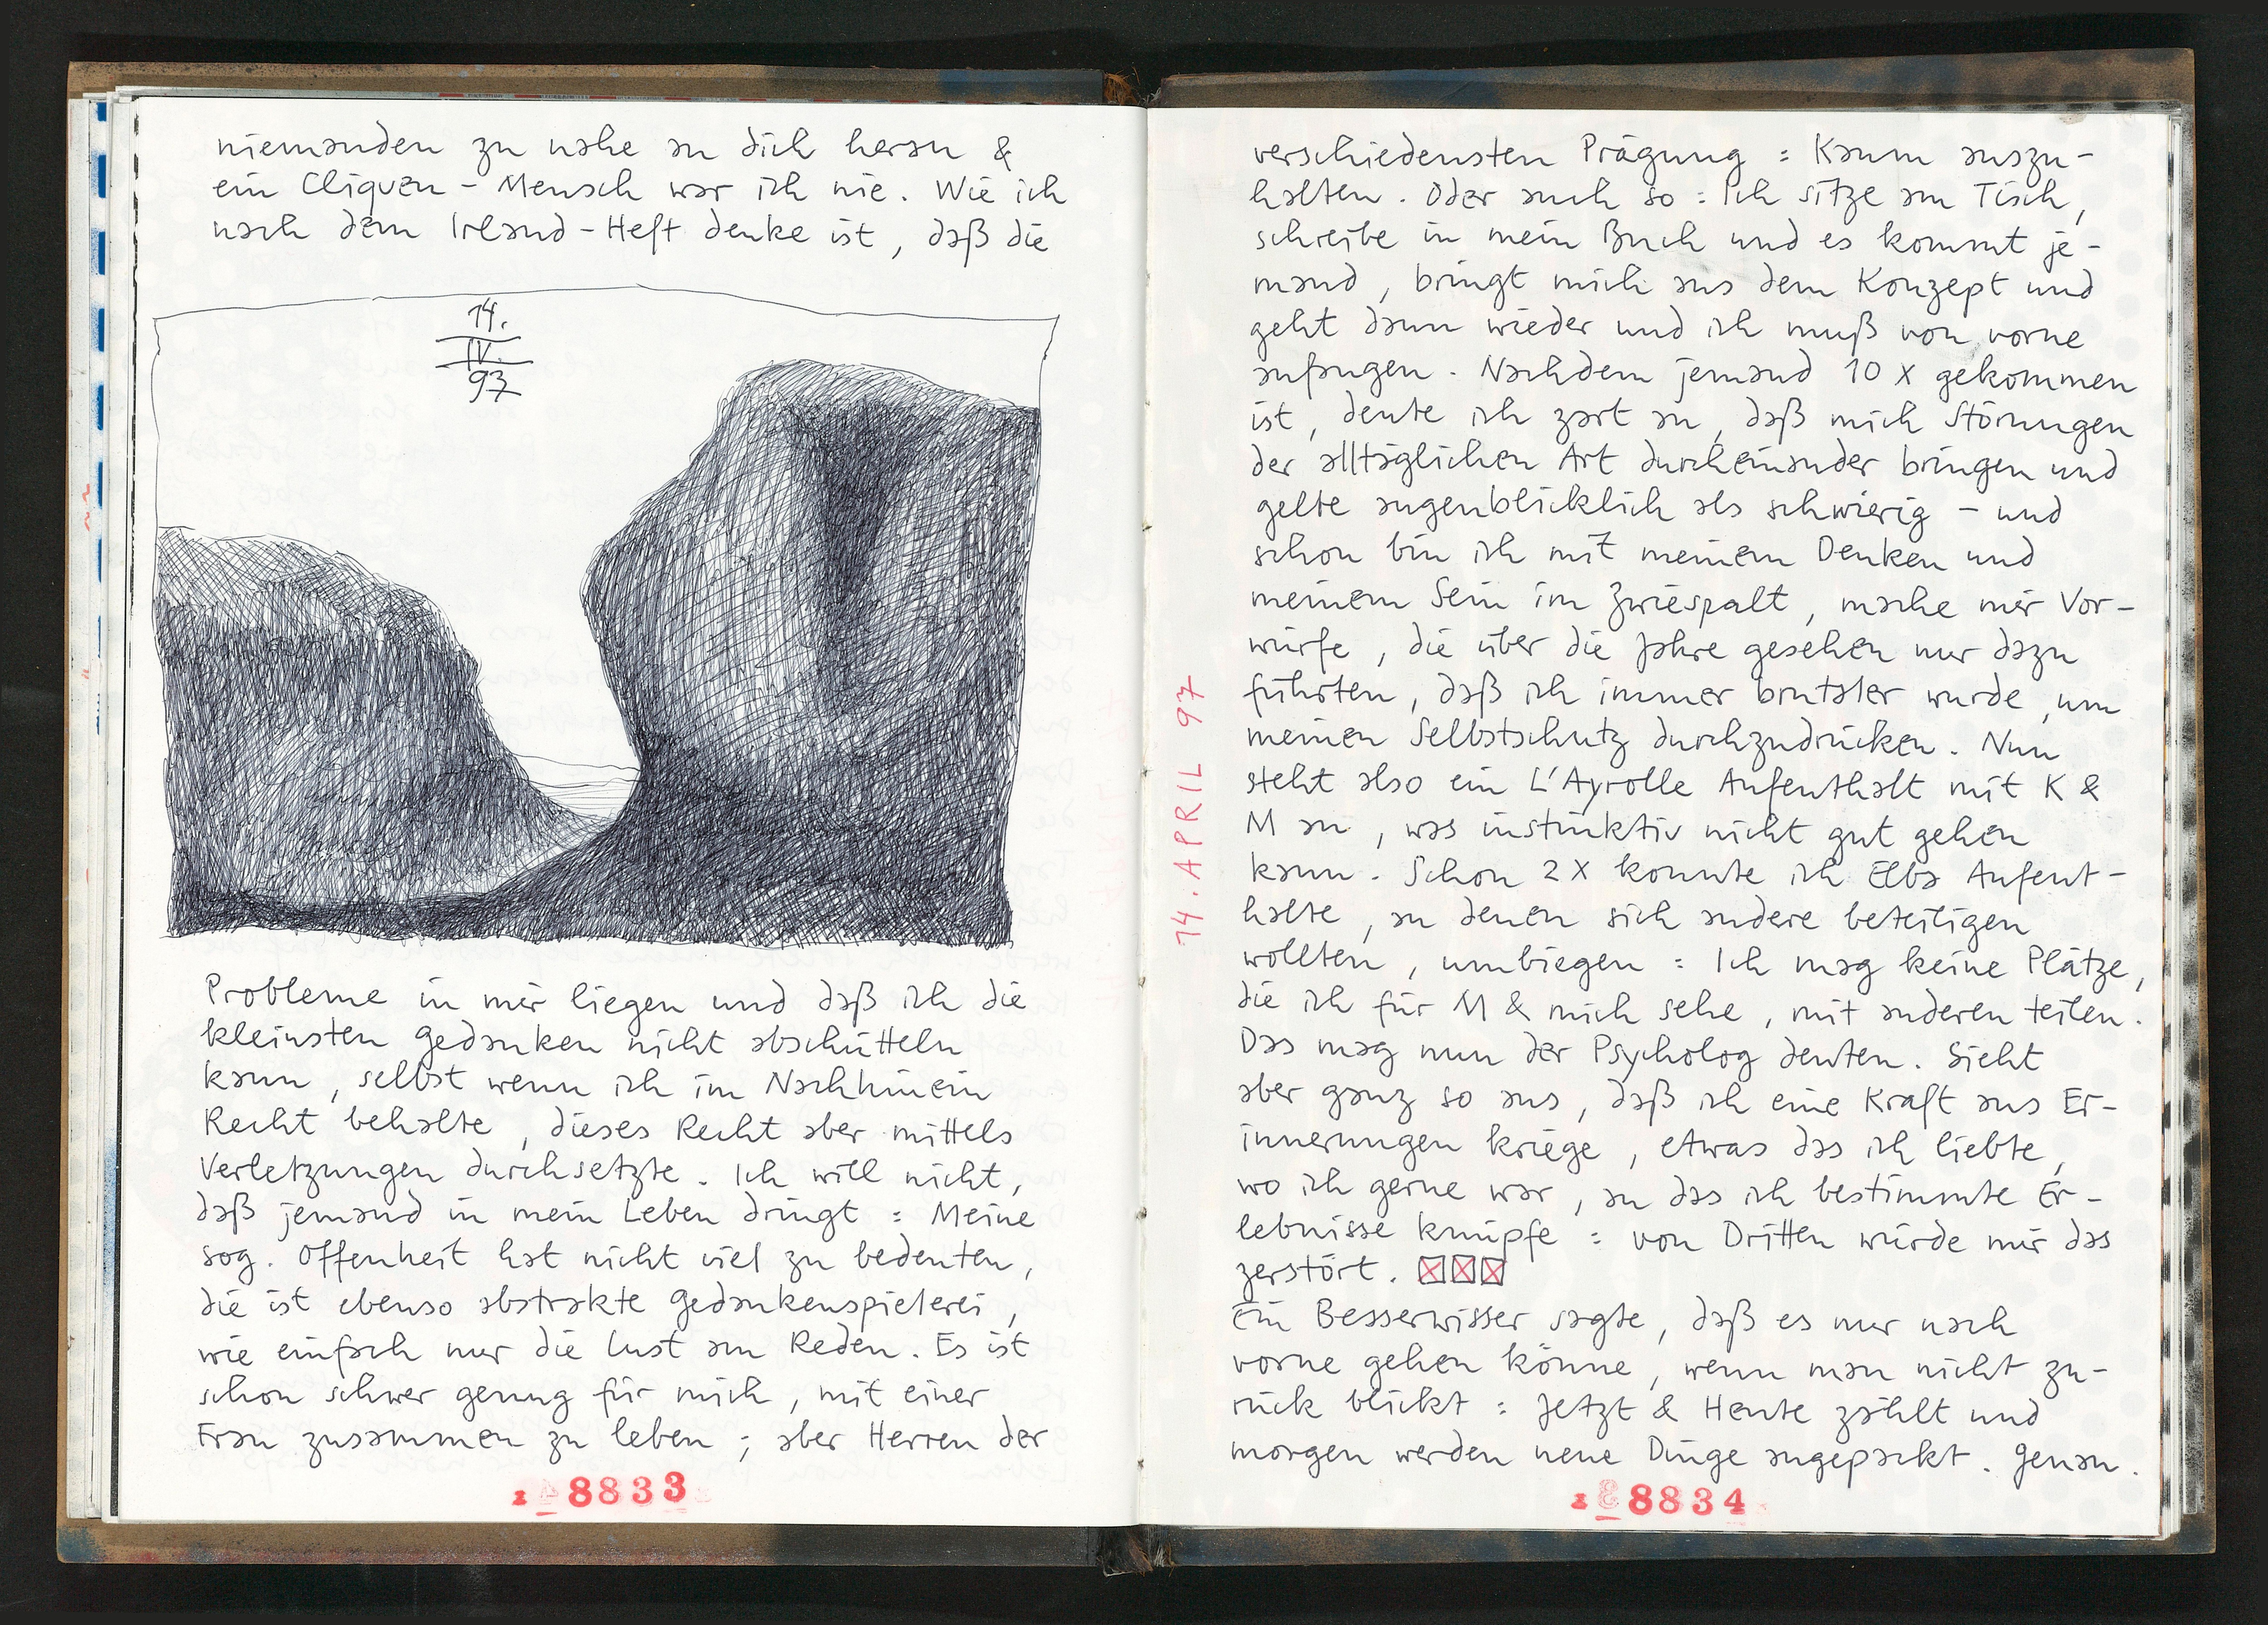 niemanden zu nahe an dich heran &
ein Cliquen-Mensch war ich nie. Wie ich
nach dem Irland-Heft denke ist, daß die
14.
IV.
97
Probleme in mir liegen und daß ich die
kleinsten Gedanken nicht abschütteln
kann, selbst wenn ich im Nachhinein
Recht behalte, dieses Recht aber mittels
Verletzungen durchsetzte. Ich will nicht,
daß jemand in mein Leben dringt : Meine
sog. Offenheit hat nicht viel zu bedeuten,
die ist ebenso abstrakte Gedankenspielerei,
wie einfach nur die Lust am Reden. Es ist
schon schwer genug für mich, mit einer
Frau zusammen zu leben ; aber Herren der
8833
14. APRIL 97
verschiedensten Prägung : Kaum auszu-
halten. Oder auch so : Ich sitze am Tisch,
schreibe in mein Buch und es kommt je-
mand, bringt mich aus dem Konzept und
geht dann wieder und ich muß von vorne
anfangen. Nachdem jemand 10 x gekommen
ist, deute ich zart an, daß mich Störungen
der alltäglichen Art durcheinander bringen und
gelte augenblicklich als schwierig - und
schon bin ich mit meinem Denken und
meinem Sein im Zwiespalt, mache mir Vor-
würfe, die über die Jahre gesehen nur dazu
führten, daß ich immer brutaler wurde, um
meinen Selbstschutz durchzudrücken. Nun
steht also ein L'Ayrolle Aufenthalt mit K &
M an, was instinktiv nicht gut gehen
kann. Schon 2 x konnte ich Elba Aufent-
halte, an denen sich andere beteiligen
wollten, umbiegen : Ich mag keine Plätze,
die ich für M & mich sehe, mit anderen teilen.
Das mag nun der Psycholog deuten. Sieht
aber ganz so aus, daß ich eine Kraft aus Er-
innerungen kriege, etwas das ich liebte,
wo ich gerne war, an das ich bestimmte Er-
lebnisse knüpfe : von Dritten würde mir das
zerstört.
Ein Besserwisser sagte, daß es nur nach
vorne gehen könne, wenn man nicht zu-
rück blickt : Jetzt & Heute zählt und
morgen werden neue Dinge angepackt. Genau.
8834